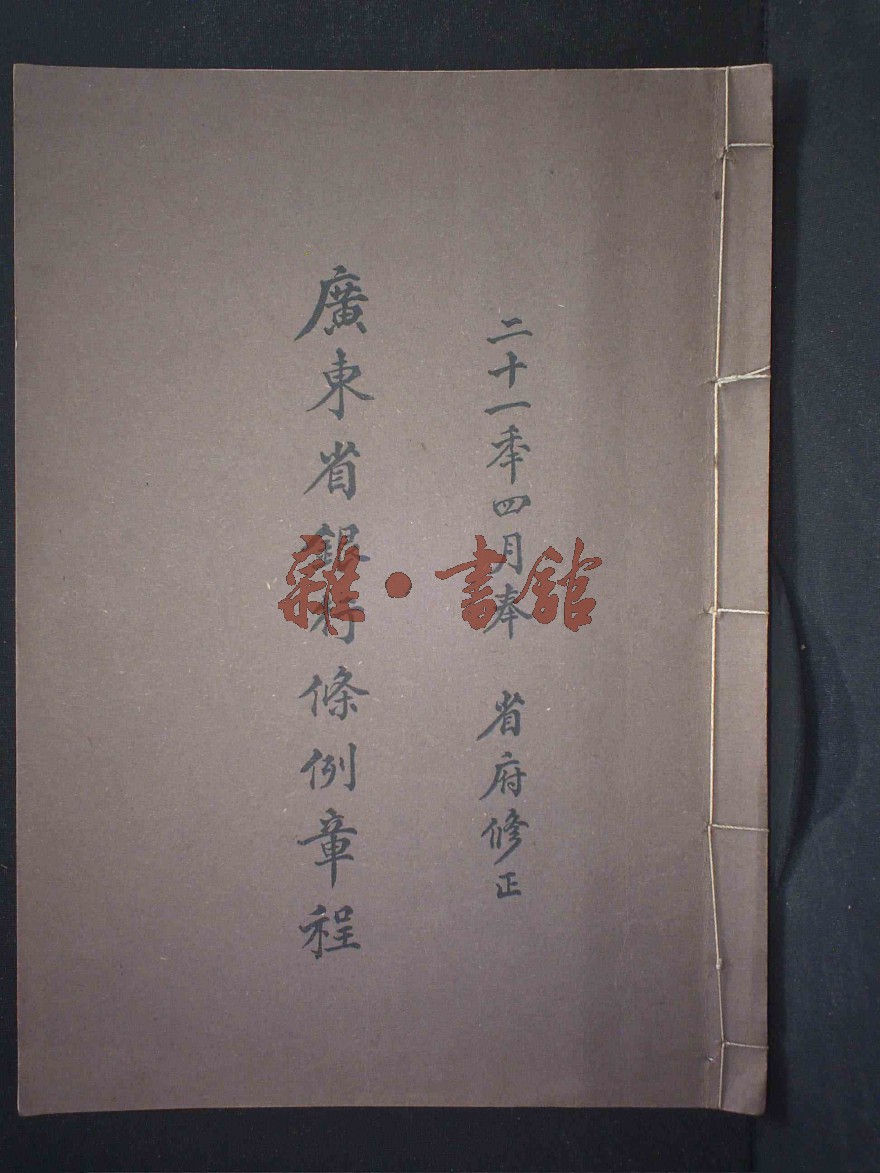 二十一年四月奉　省府修正
廣東省銀行條例章程
雜·書館